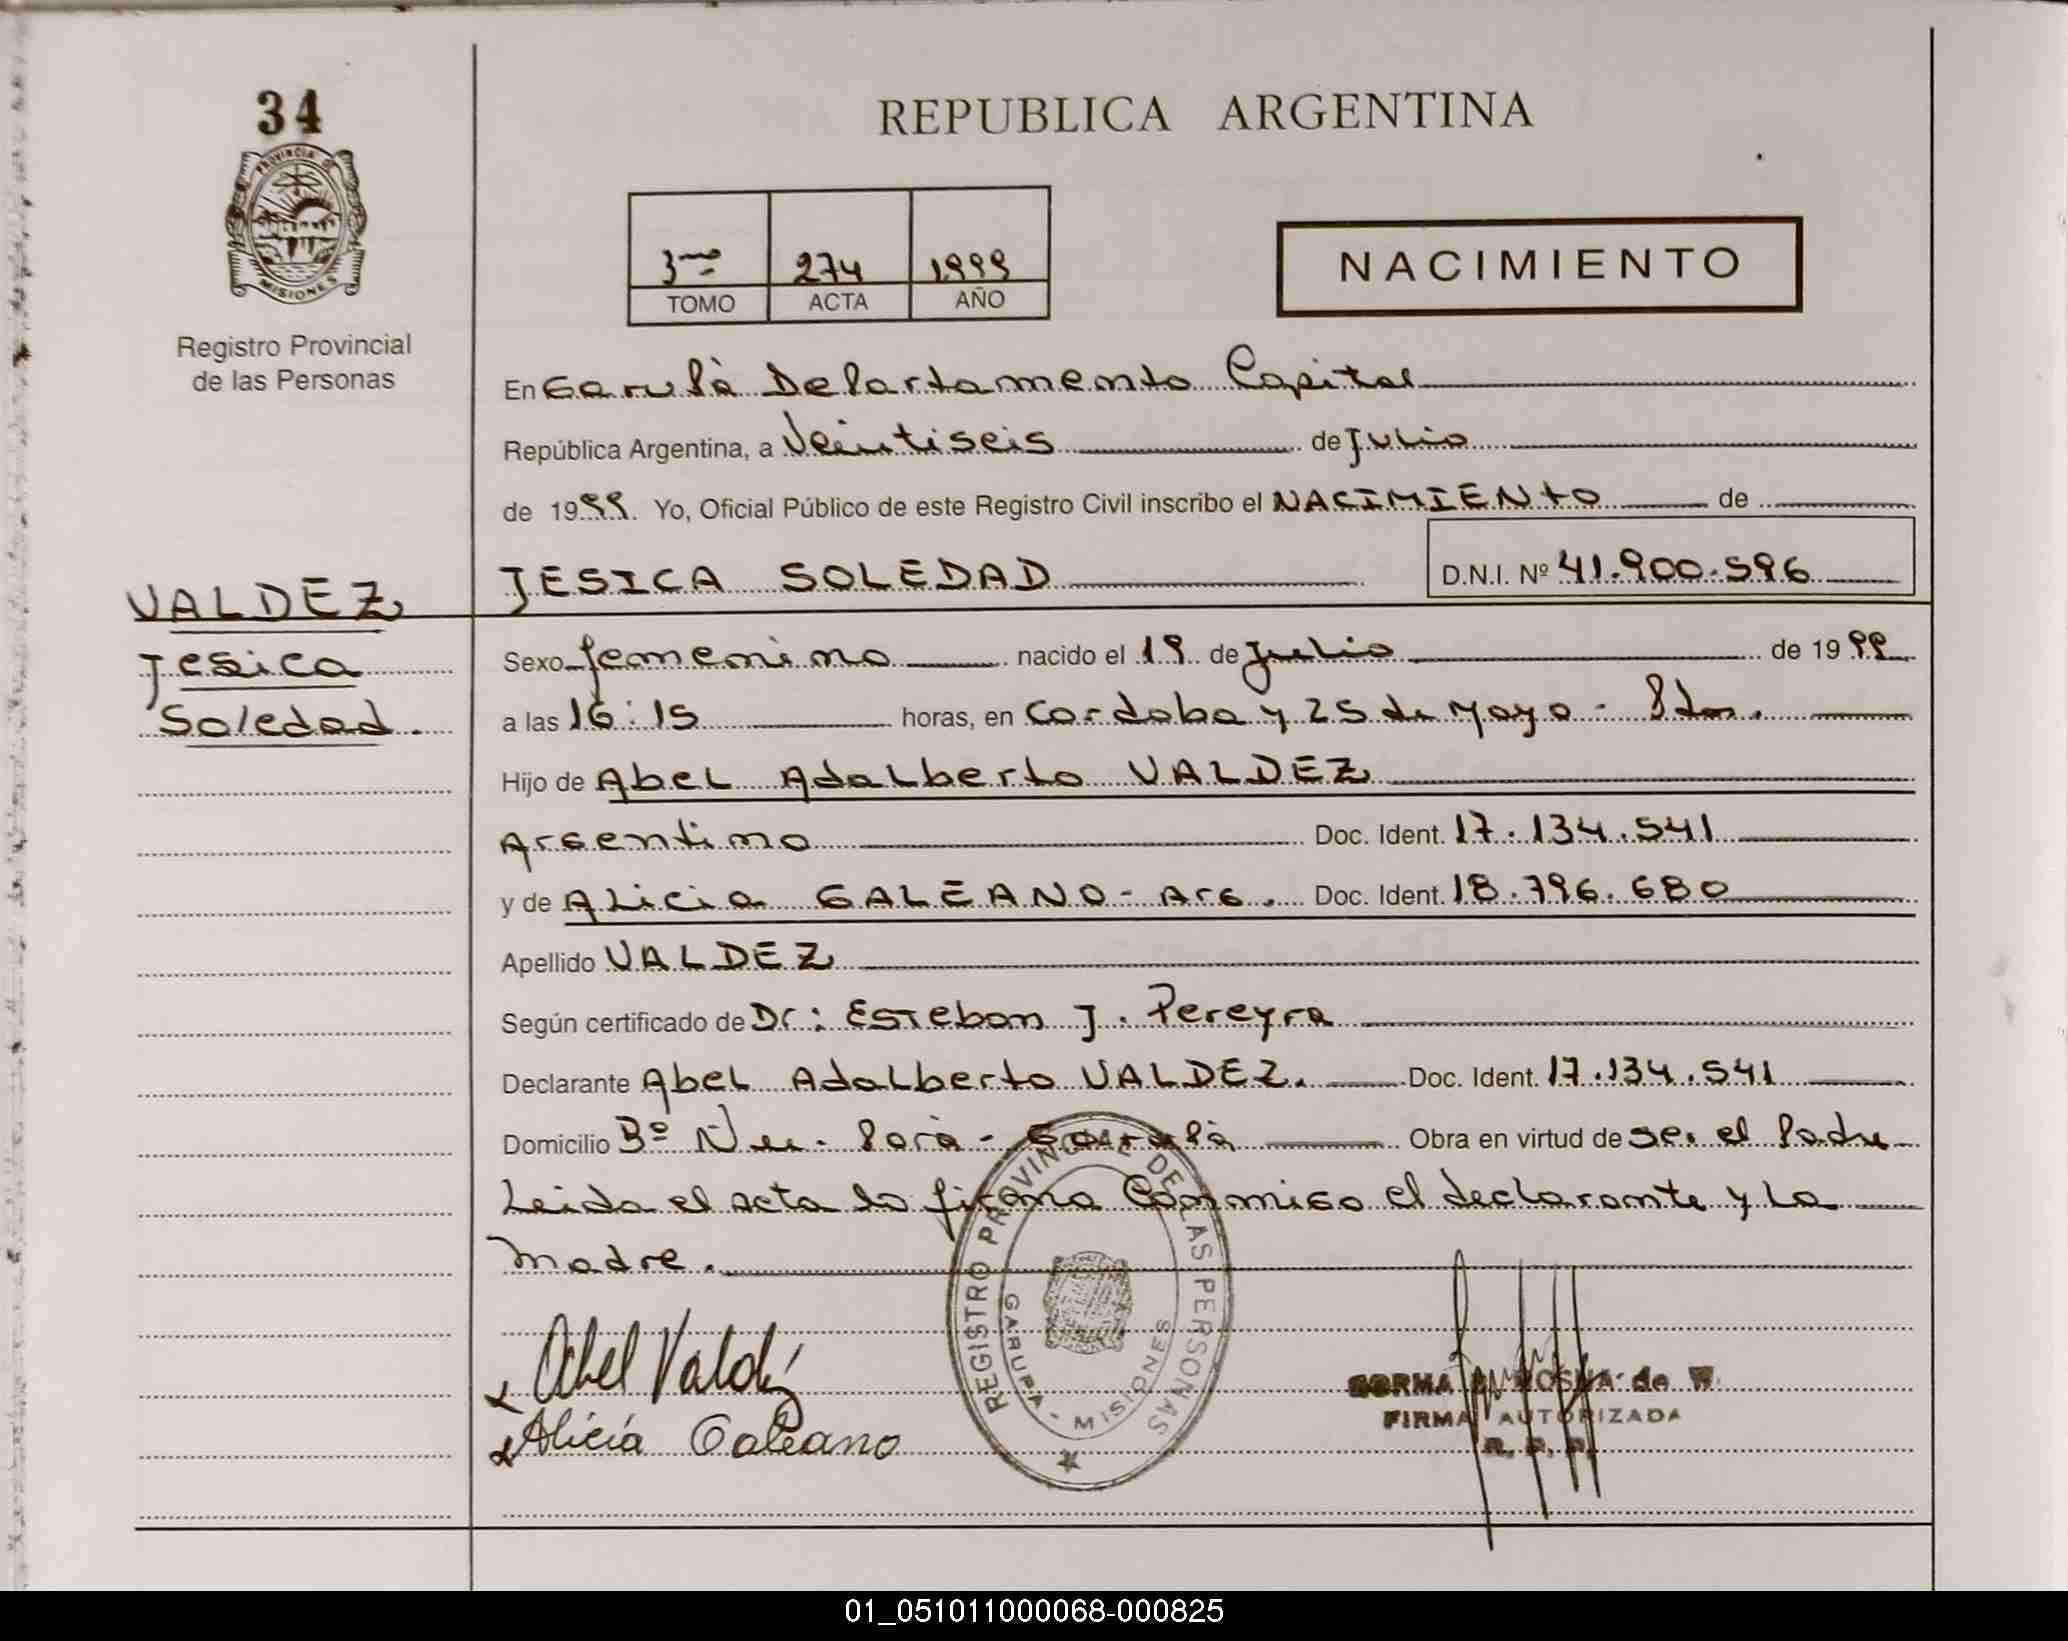 34
REPUBLICA ARGENTINA
PROVINCIA D
MISIONES
Registro Provincial
de las Personas
3mo 274 1999
TOMO ACTA AÑO
NACIMIENTO
En Garupà Departamento Capital
República Argentina, a Veintiseis de Julio
de 1999. Yo, Oficial Público de este Registro Civil inscribo el NACIMIENTO de
JESICA SOLEDAD D.N.I. Nº 41.900.596
VALDEZ
Jesica
Soledad.
Sexo femenino nacido el 19 de Julio de 1999
a las 16:15 horas, en Cordoba y 25 de Mayo - Pdas.
Hijo de Abel Adalberto VALDEZ
Argentino Doc. Ident. 17.134.541
y de Alicia GALEANO - Arg. Doc. Ident. 18.796.680
Apellido VALDEZ
Según certificado de Dr: Esteban J. Pereyra
Declarante Abel Adalberto VALDEZ. Doc. Ident. 17.134.541
Domicilio Bº Ñu - Porà - Garupà Obra en virtud de ser el Padre
Leida el acta la firma Conmigo el declarante y La
Madre.
REGISTRO PROVINCIAL DE LAS PERSONAS
GARUPA - MISIONES
Abel Valdéz
Alicia Galeano
de
FIRMA AUTORIZADA
01_051011000068-000825